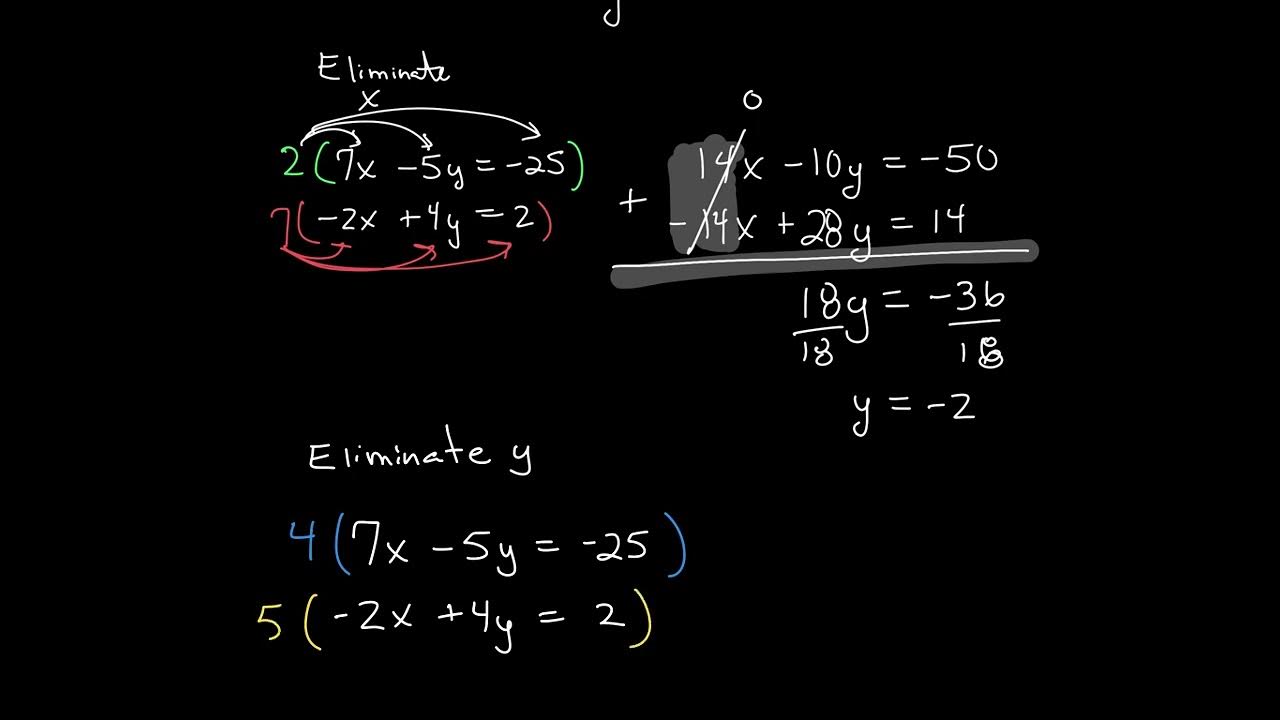 Eliminate
x
2(7x -5y = -25)
7(-2x +4y = 2)
0
14x -10y = -50
+ -14x +28y = 14
18y = -36
18 18
y = -2
Eliminate y
4(7x -5y = -25)
5(-2x +4y = 2)